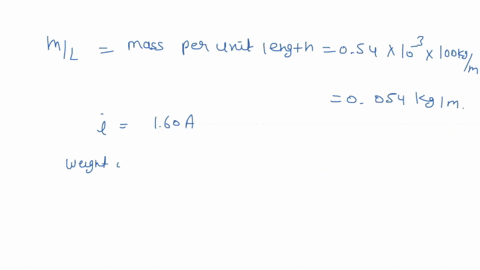 m/L = mass per unit length = 0.54 × 10³ × 100 kg/m
= 0.054 kg/m.
i = 1.60 A
Weight